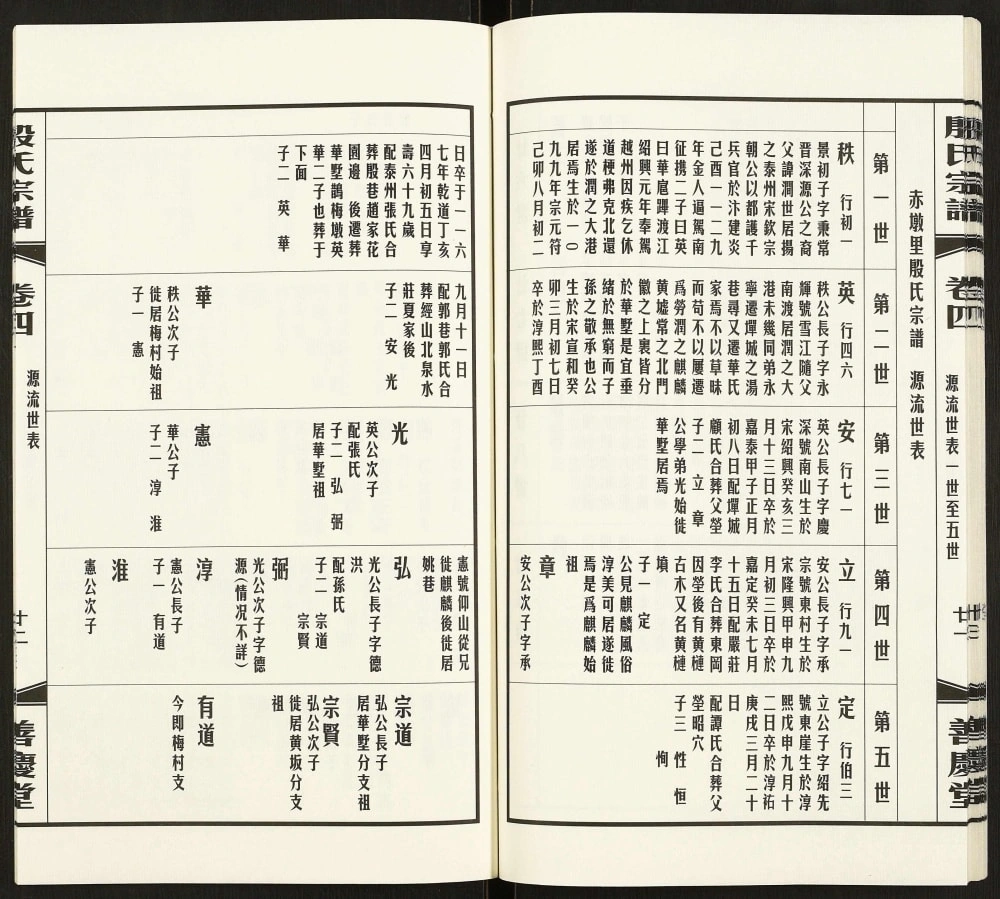 殷氏宗譜
卷四
源流世表一世至五世
廿一
善慶堂
赤墩里殷氏宗譜 源流世表
第一世
秩 行初一
景初子字秉常
晋深源公之裔
父諱潤世居揚
之泰州宋欽宗
朝公以都護千
兵官於汴建炎
己酉一一二九
年金人逼駕南
征携二子曰英
曰華扈蹕渡江
紹興元年奉駕
越州因疾乞休
道梗弗克北還
遂於潤之大港
居焉生於一〇
九九年宗元符
己卯八月初二
第二世
英 行四六
秩公長子字永
輝號雪江隨父
南渡居潤之大
港未幾同弟永
寧遷墠城之湯
巷尋又遷華氏
家焉不以草昧
而苟不以屢遷
爲勞潤之麒麟
黄墟常之北門
徽之上裏皆分
於華墅是宜垂
緒於無窮而子
孫之敬承也公
生於宋宣和癸
卯三月初七日
卒於淳熙丁酉
第三世
安 行七一
英公長子字慶
深號南山生於
宋紹興癸亥三
月十三日卒於
嘉泰甲子正月
初八日配墠城
顧氏合葬父塋
子二 立 章
公學弟光始徙
華墅居焉
第四世
立 行九一
安公長子字承
宗號東村生於
宋隆興甲申九
月初三日卒於
嘉定癸未七月
十五日配嚴莊
李氏合葬東岡
因塋後有黄槤
古木又名黄槤
墳
子一 定
公見麒麟風俗
淳美可居遂徙
焉是爲麒麟始
祖
章
安公次子字承
第五世
定 行伯三
立公子字紹先
號東崖生於淳
熙戊申九月十
二日卒於淳祐
庚戌三月二十
日
配譚氏合葬父
塋昭穴
子三 性 恒
恂
日卒于一一六
七年乾道丁亥
四月初五日享
壽六十九歲
配泰州張氏合
葬殷巷趙家花
園邊 後遷葬
華墅鵲梅墩英
華二子也葬于
下面
子二 英 華
九月十一日
配郭巷郭氏合
葬經山北泉水
莊夏家後
子二 安 光
華
秩公次子
徙居梅村始祖
子一 憲
光
英公次子
配張氏
子二 弘 弼
居華墅祖
憲
華公子
子二 淳 淮
憲號仰山從兄
徙麒麟後徙居
姚巷
弘
光公長子字德
洪
配孫氏
子二 宗道
宗賢
弼
光公次子字德
源(情况不詳)
淳
憲公長子
子一 有道
淮
憲公次子
宗道
弘公長子
居華墅分支祖
宗賢
弘公次子
徙居黄坂分支
祖
有道
今即梅村支
殷氏宗譜
卷四
源流世表
廿二
善慶堂